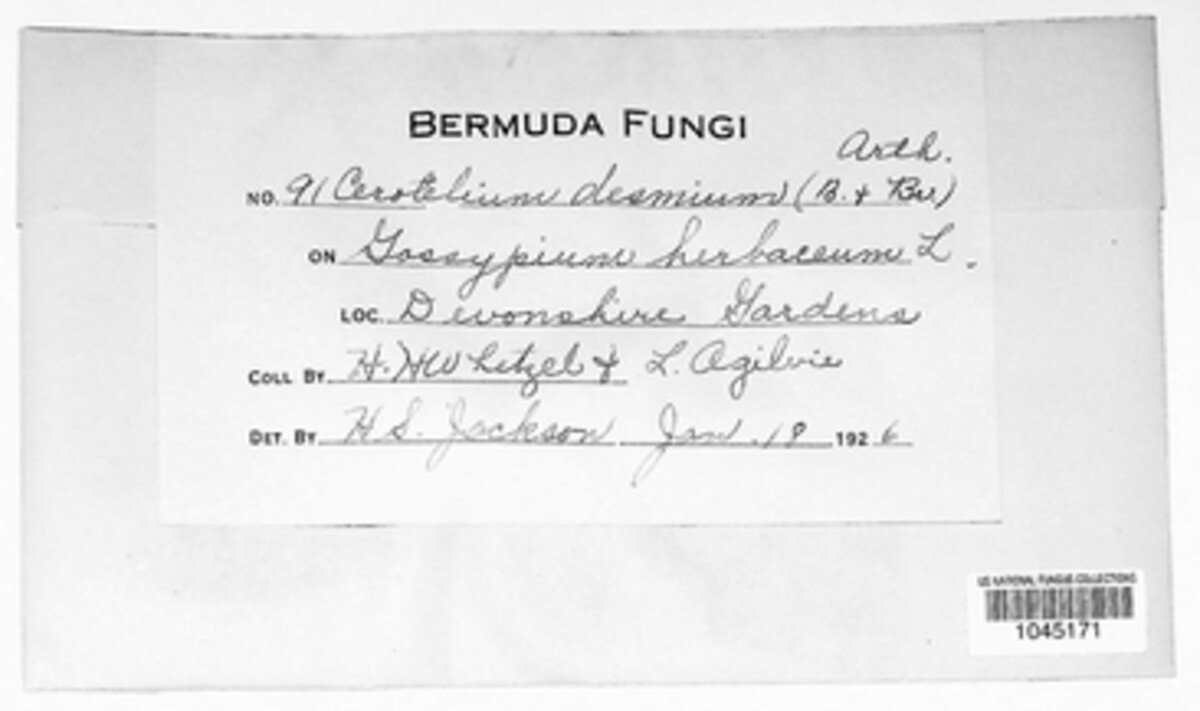 BERMUDA FUNGI
Arth.
NO. 91 Cerotelium desmium (B. & Br.)
ON Gossypium herbaceum L.
LOC. Devonshire Gardens
COLL BY H. H Whetzel & L. Ogilvie
DET. BY H S. Jackson Jan. 18 1926
US NATIONAL FUNGUS COLLECTIONS
1045171